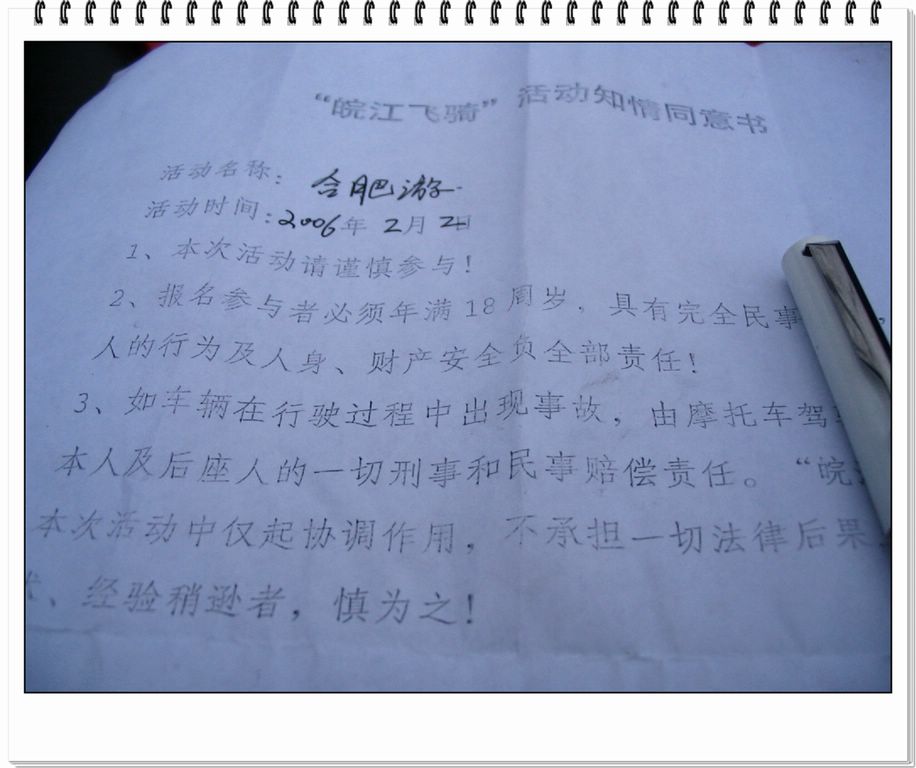 “皖江飞骑”活动知情同意书
活动名称：合肥游
活动时间：2006年2月2日
1、本次活动请谨慎参与！
2、报名参与者必须年满18周岁，具有完全民事
人的行为及人身、财产安全负全部责任！
3、如车辆在行驶过程中出现事故，由摩托车驾
本人及后座人的一切刑事和民事赔偿责任。“皖
本次活动中仅起协调作用，不承担一切法律后果
、经验稍逊者，慎为之！